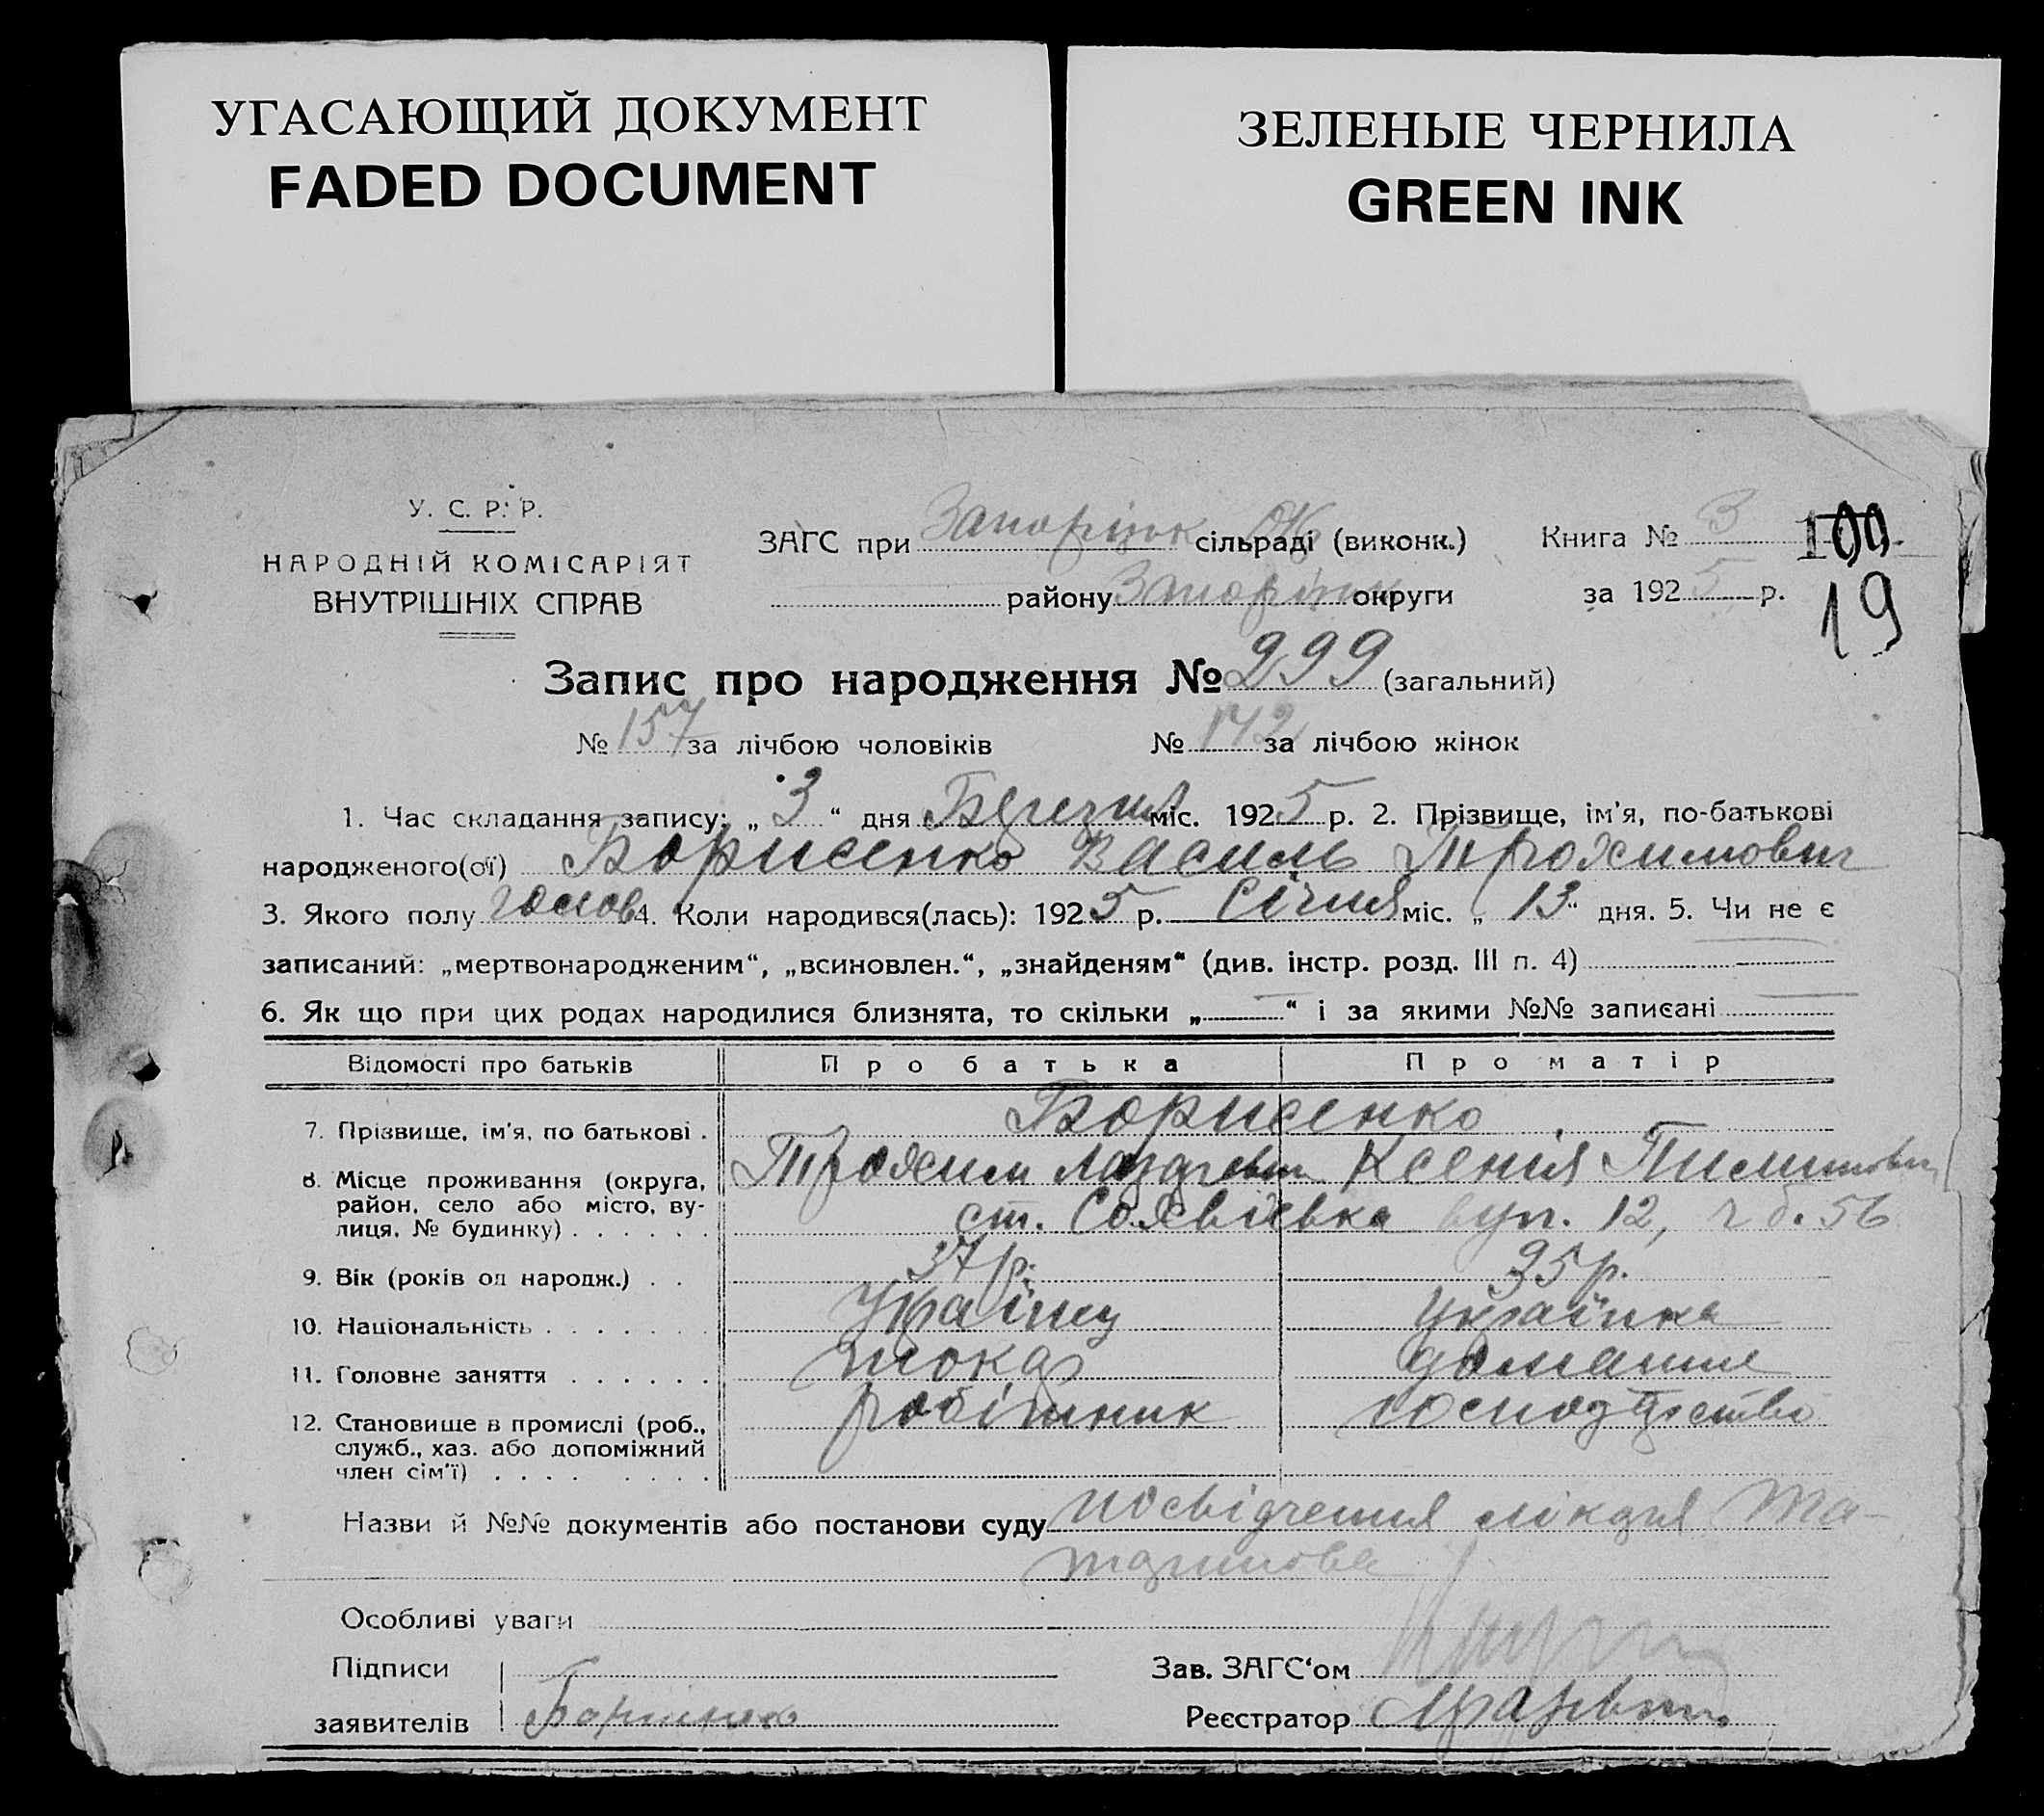 УГАСАЮЩИЙ ДОКУМЕНТ
FADED DOCUMENT
ЗЕЛЕНЫЕ ЧЕРНИЛА
GREEN INK
У. С. Р. Р.
НАРОДНІЙ КОМІСАРІЯТ
ВНУТРІШНІХ СПРАВ
ЗАГС при Запоріжк сільраді (виконк.)
району Запоріжж округи
Книга № 3
за 1925 р.
100
19
Запис про народження № 299 (загальний)
№ 157 за лічбою чоловіків № 142 за лічбою жінок
1. Час складання запису: „ 3 “ дня Березня міс. 1925 р. 2. Прізвище, ім'я, по-батькові
народженого(ої) Борисенко Василь Трохимович
3. Якого полу чолов 4. Коли народився(лась): 1925 р. Січня міс. „ 13 “ дня. 5. Чи не є
записаний: „мертвонародженим“, „всиновлен.“, „знайденям“ (див. інстр. розд. III п. 4)
6. Як що при цих родах народилися близнята, то скільки „ “ і за якими №№ записані
Відомості про батьків Про батька Про матір
7. Прізвище, ім'я, по батькові . Борисенко
Трохим Ксенія
8. Місце проживання (округа,
район, село або місто, ву-
лиця, № будинку) . . . . . . ст. Софіївка вул. 12, ч б. 56
9. Вік (років од народж.) . . 37 р. 35 р.
10. Національність . . . . . . . Українец Українка
11. Головне заняття . . . . . . токар домашнє
12. Становище в промислі (роб., робітник господарство
служб., хаз. або допоміжний
член сім'ї) . . . . . . . .
Назви й №№ документів або постанови суду посвідчення лікаря Та-
Особливі уваги
Підписи
заявителів Борисенко
Зав. ЗАГС‘ом
Реєстратор